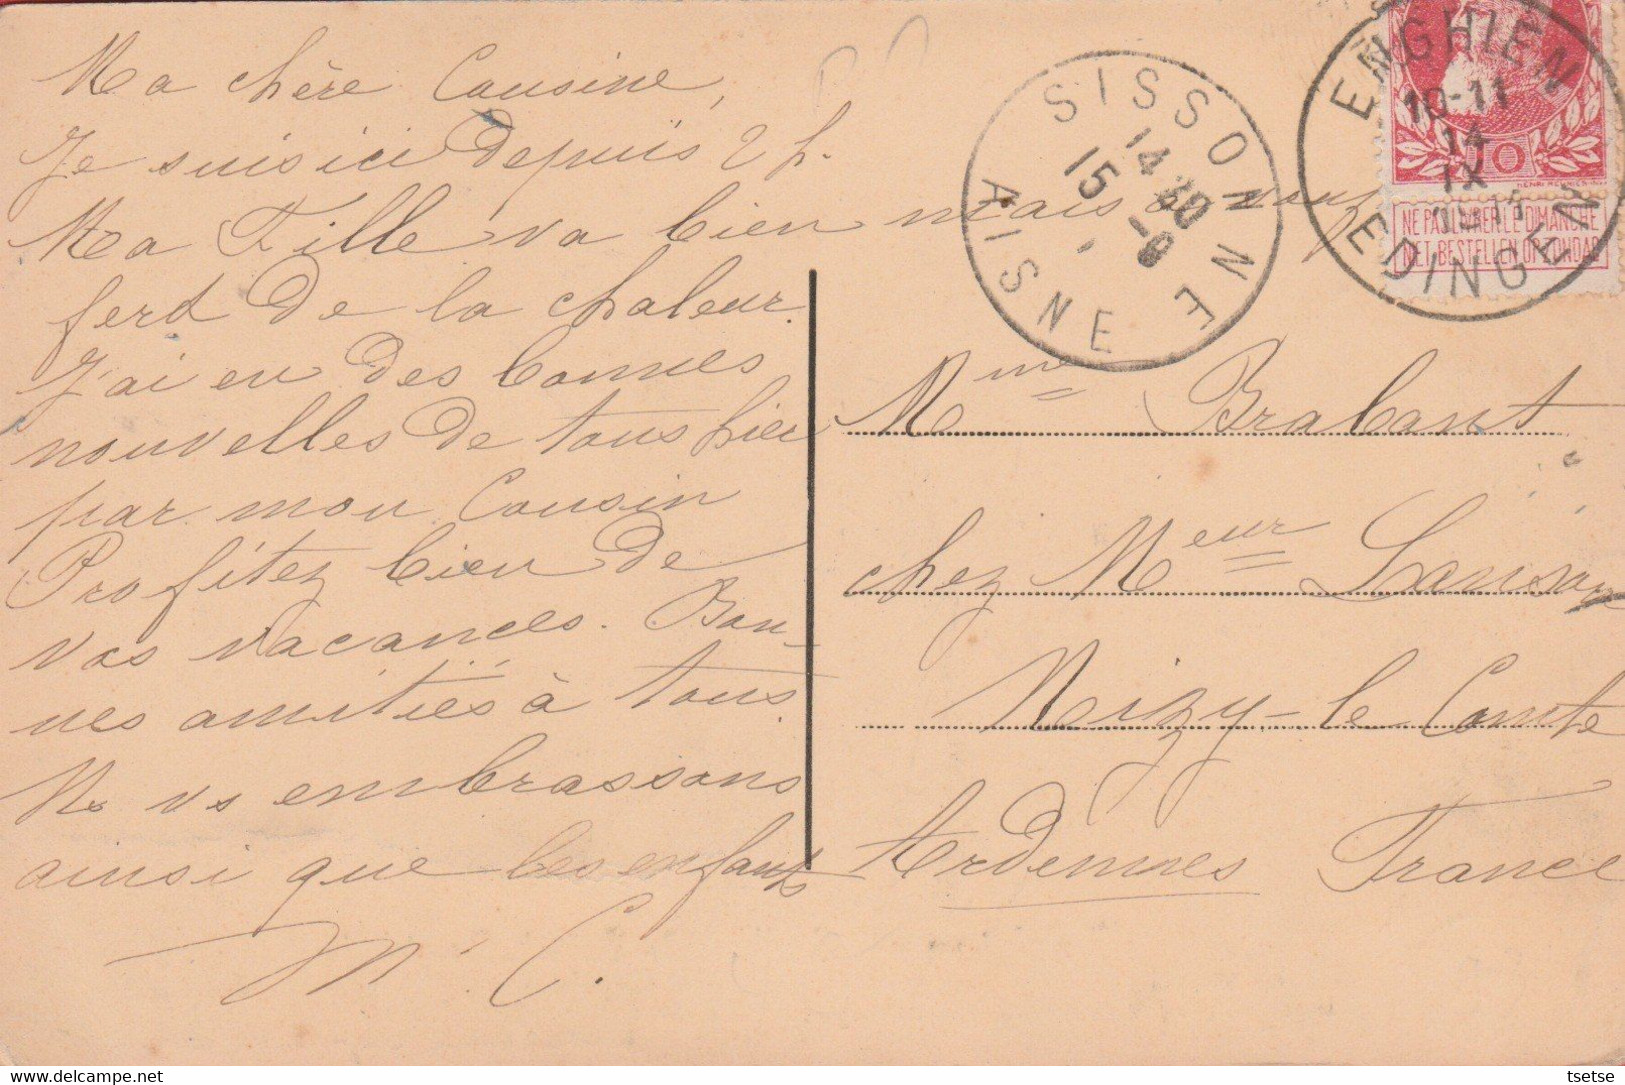 Ma chère Cousine,
Je suis ici depuis 2 h.
Ma Fille va bien mais
de la chaleur.
J'ai eu des bonnes
nouvelles de tous hier
par mon Cousin
Profitez bien de
vos vacances. Bon-
nes amitiés à tous
Ns vs embrassons
ainsi que les enfants
M. C.
SISSONNE
14 30
15 -9
AISNE
ENGHIEN
10-11
14
IX
EDINGEN
10
NE PAS LIVRER LE DIMANCHE
NIET BESTELLEN OP ZONDAG
Mme Brabant
chez Meur
Nizy-le Comte
Ardennes France
tsetse